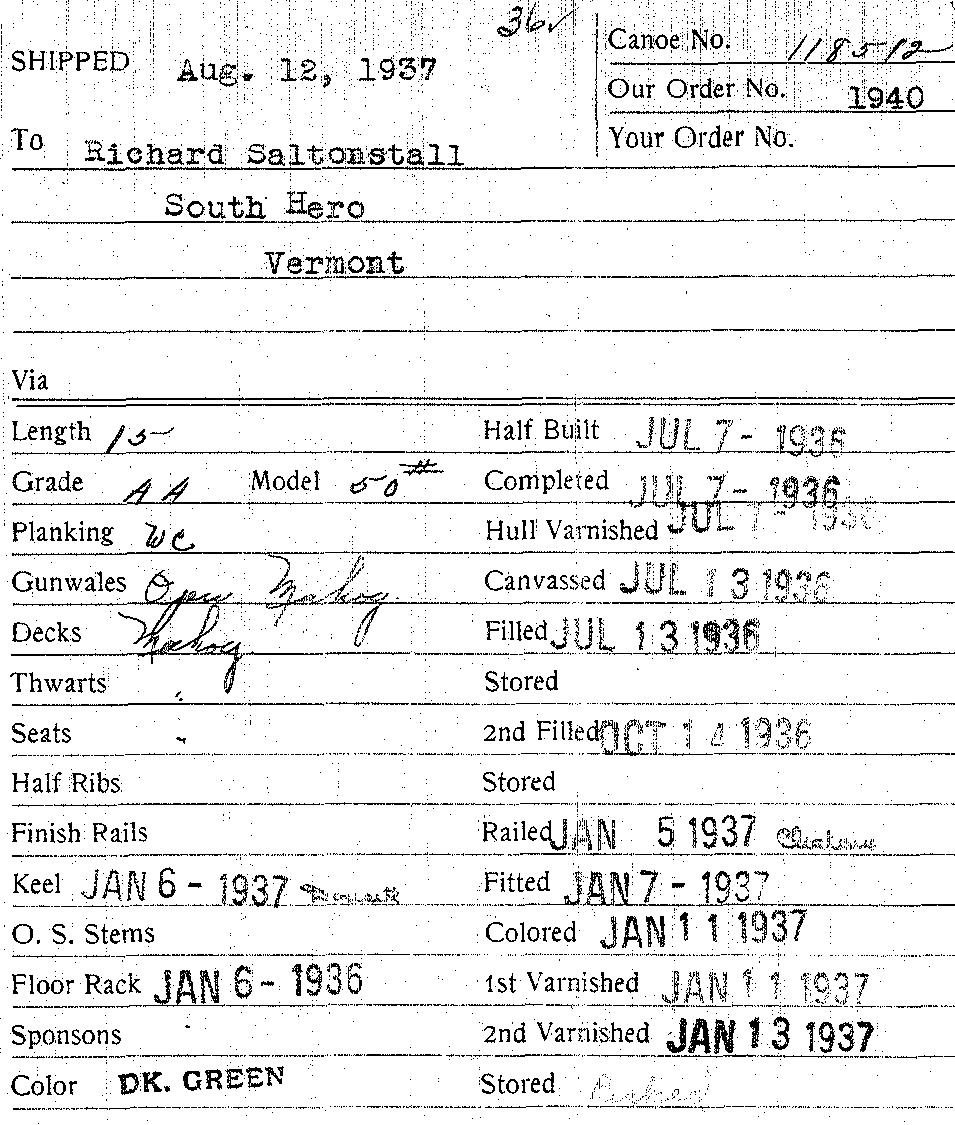 36 ✓
Canoe No. 118512
SHIPPED Aug. 12, 1937
Our Order No. 1940
To Richard Saltonstall
Your Order No.
South Hero
Vermont
Via
Length 15 Half Built JUL 7 - 1936
Grade A A Model 50# Completed JUL 7 - 1936
Planking WC Hull Varnished JUL 7 - 1936
Gunwales Open Mahog. Canvassed JUL 13 1936
Decks Mahog. Filled JUL 13 1936
Thwarts Stored
Seats 2nd Filled OCT 14 1936
Half Ribs Stored
Finish Rails Railed JAN 5 1937
Keel JAN 6 - 1937 Fitted JAN 7 - 1937
O. S. Stems Colored JAN 11 1937
Floor Rack JAN 6 - 1936 1st Varnished JAN 11 1937
Sponsons 2nd Varnished JAN 13 1937
Color DK. GREEN Stored